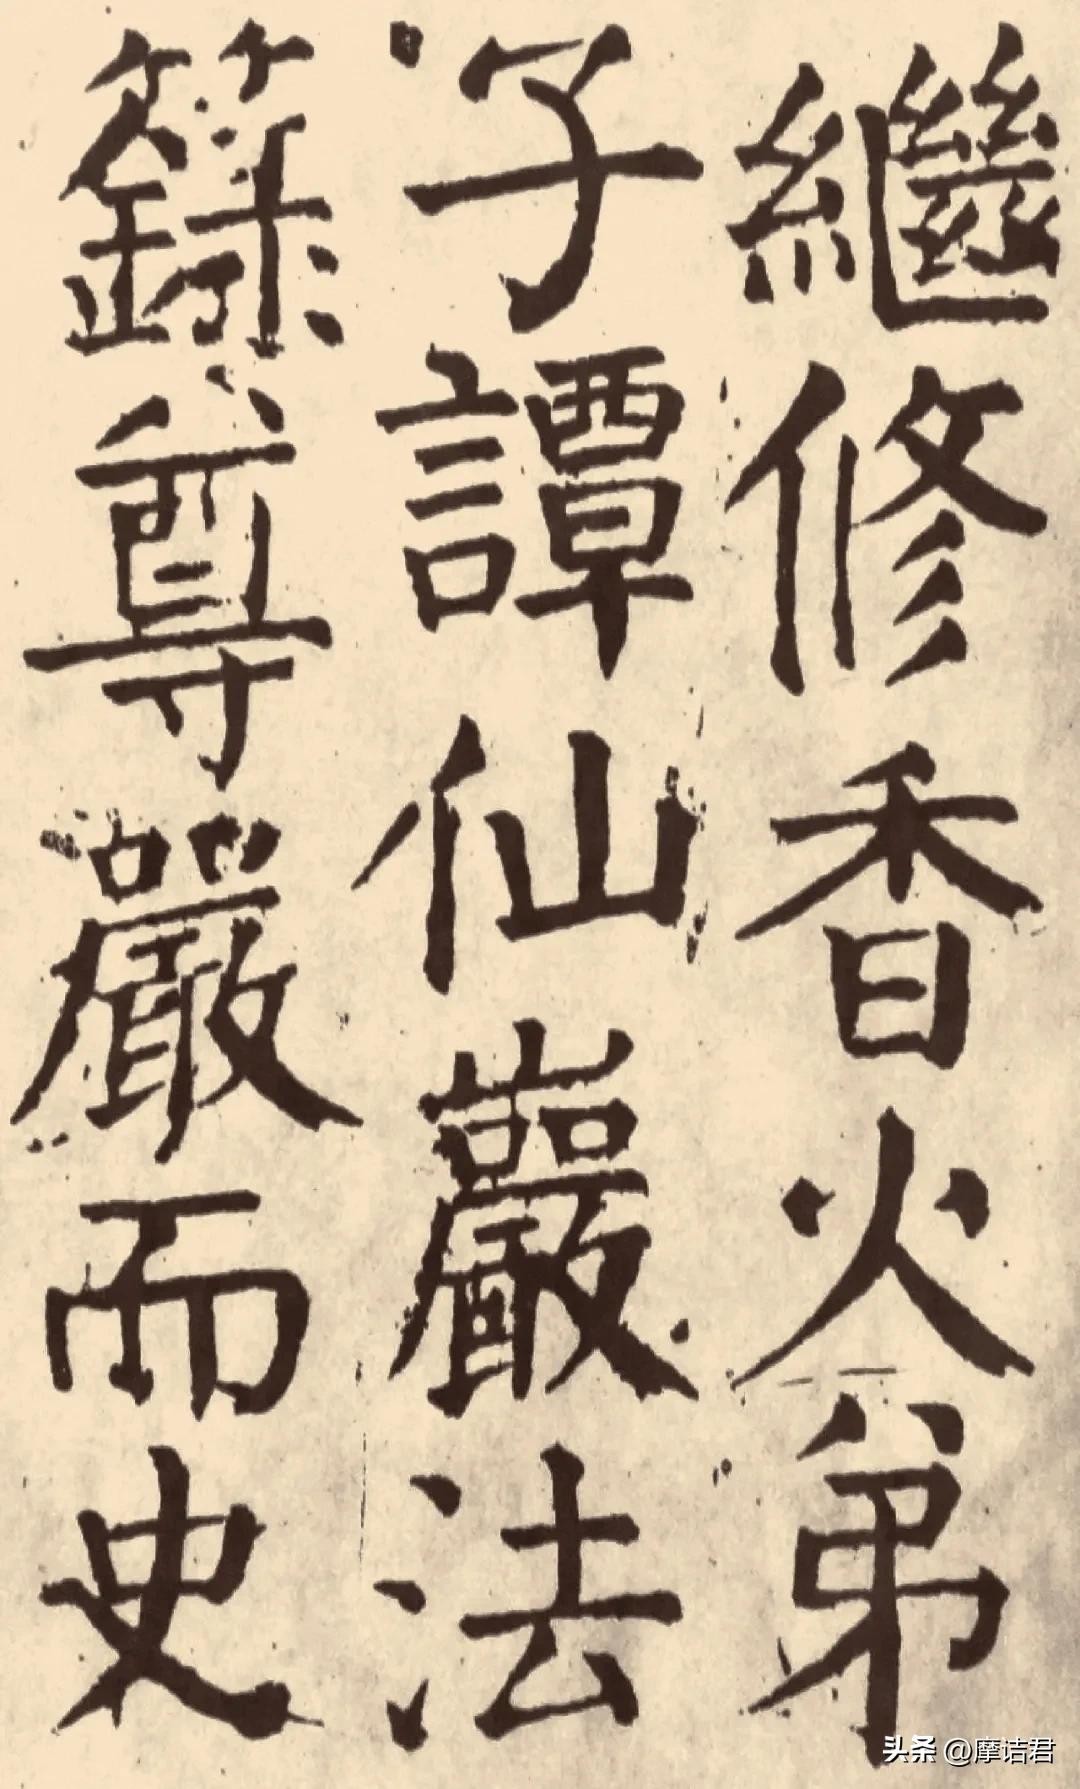 繼修香火弟
子譚仙巖法
籙尊嚴而史
头条 @摩诘君